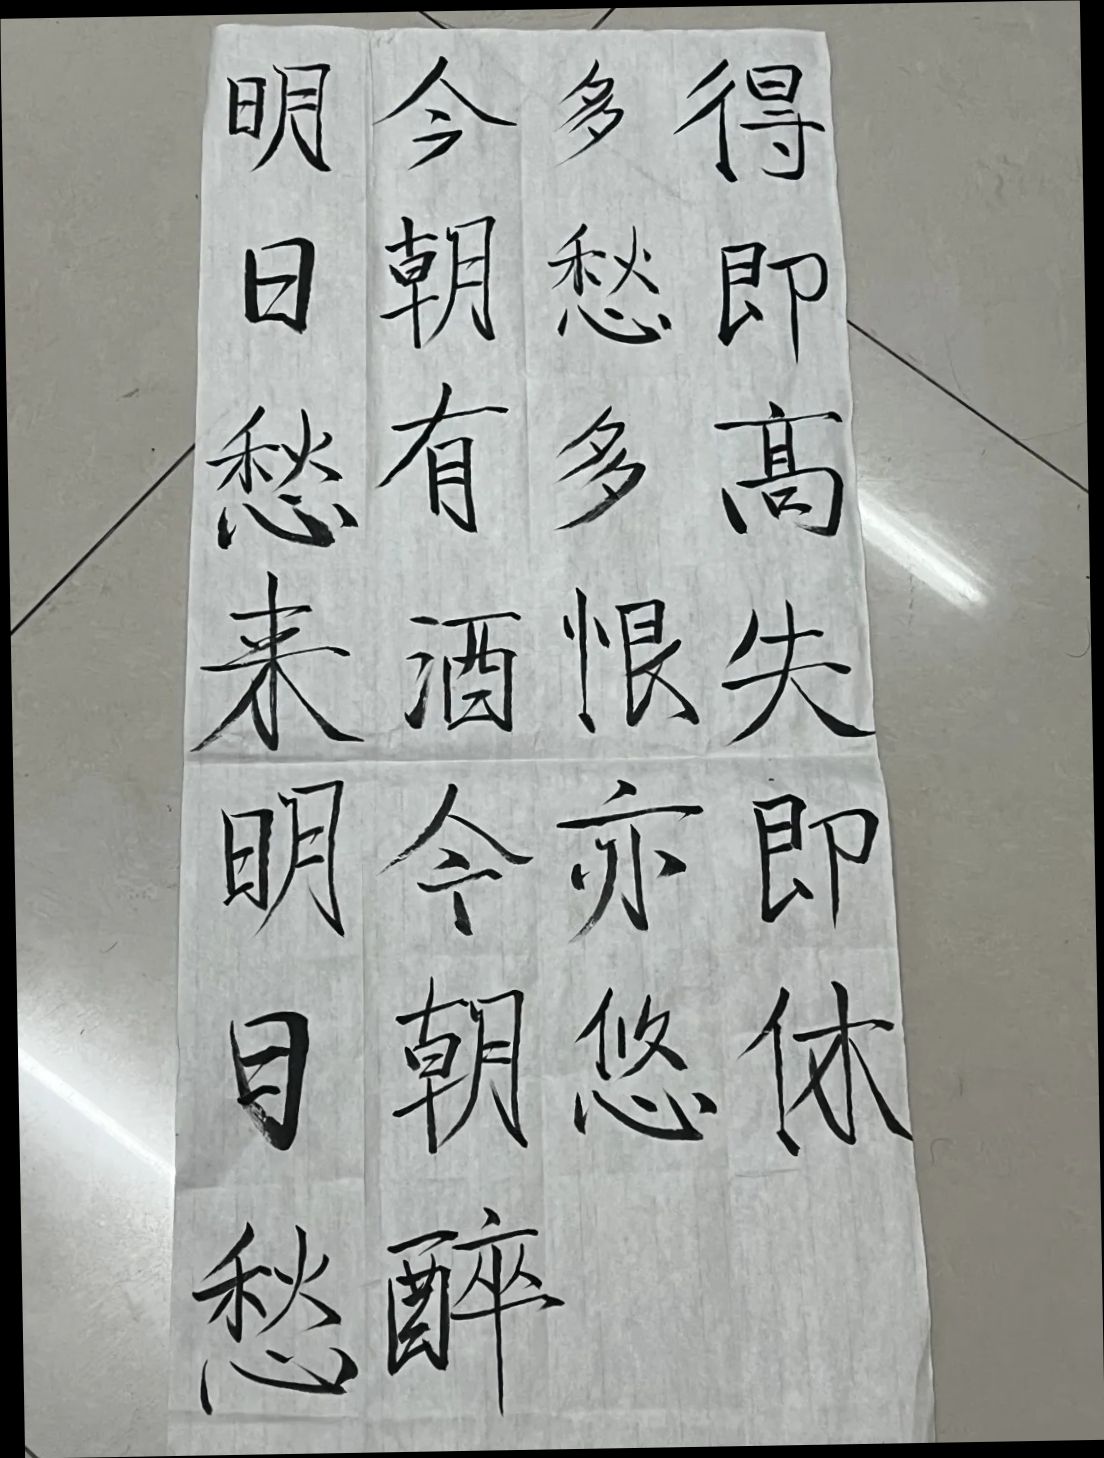 得即髙失即休
多愁多恨亦悠
今朝有酒今朝醉
明日愁来明日愁